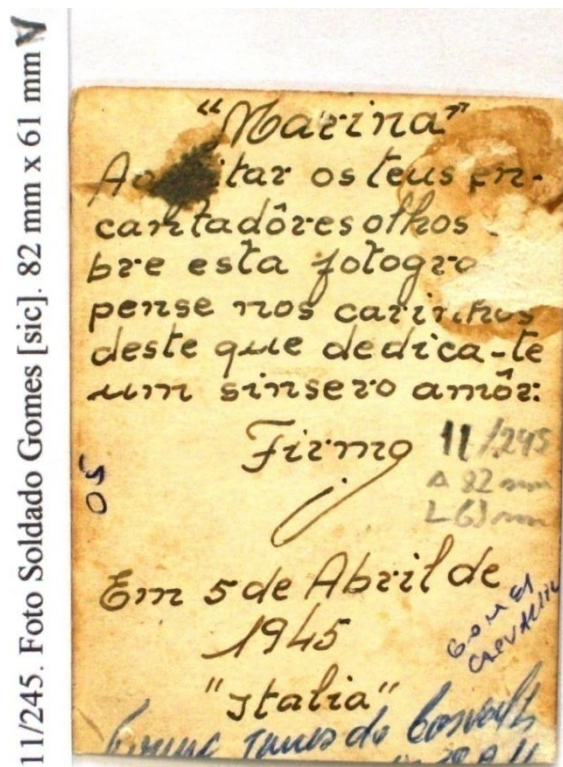 11/245. Foto Soldado Gomes [sic]. 82 mm x 61 mm V
"Marina"
os teus en-
cantadôres olhos
bre esta
pense nos carinhos
deste que dedica-te
um sinsero amôr:
Firmo
11/245
A 82 mm
L 61 mm
50
Em 5 de Abril de
1945
"Italia"
GOMES
CARVALHO